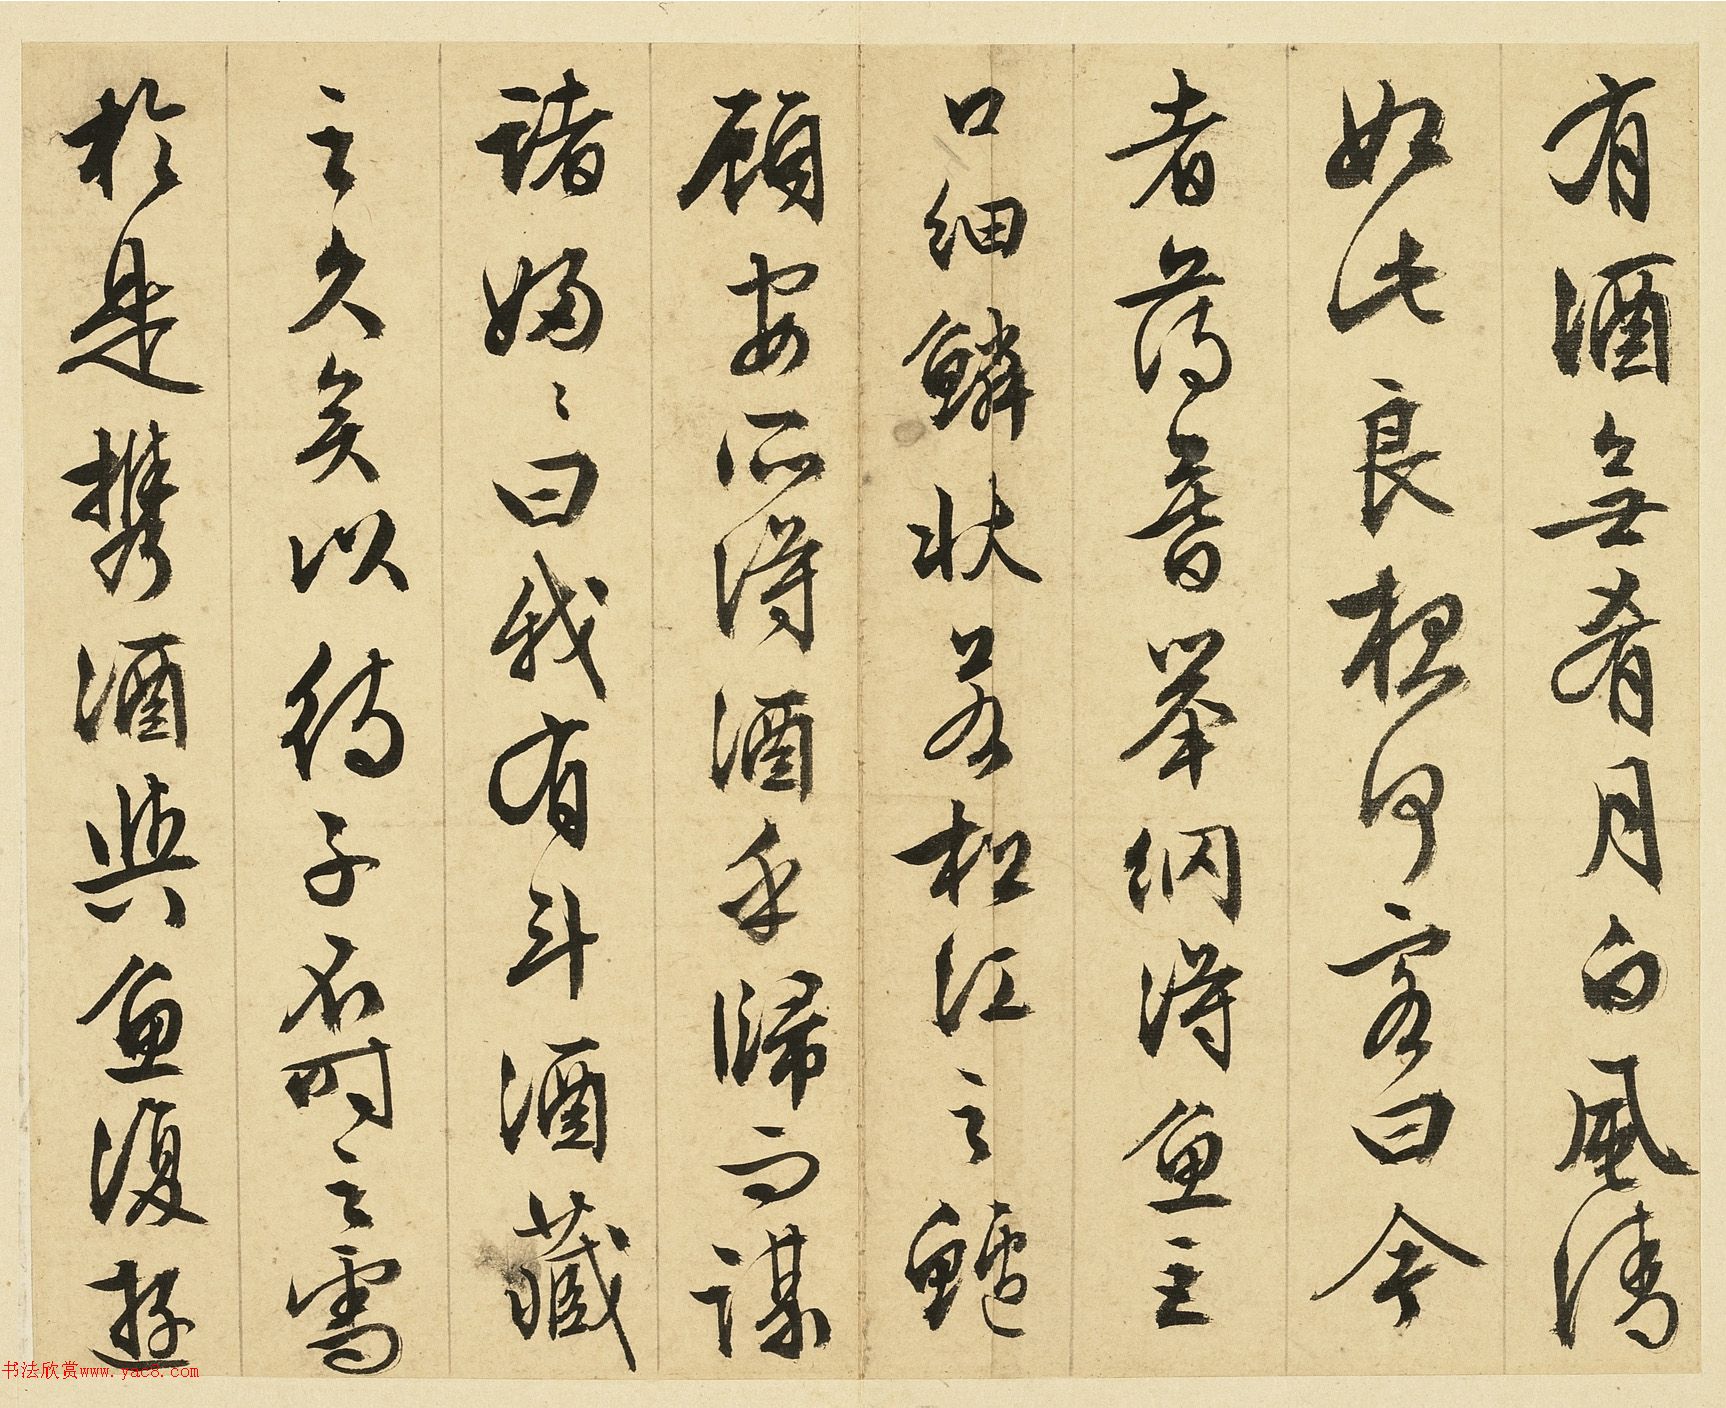 有酒無肴月白風清
如此良夜何客曰今
者薄暮舉網得魚巨
口細鱗狀若松江之鱸
顧安所得酒乎歸而謀
諸婦〻曰我有斗酒藏
之久矣以待子不時之需
於是攜酒與魚復遊
书法欣赏www.yac8.com